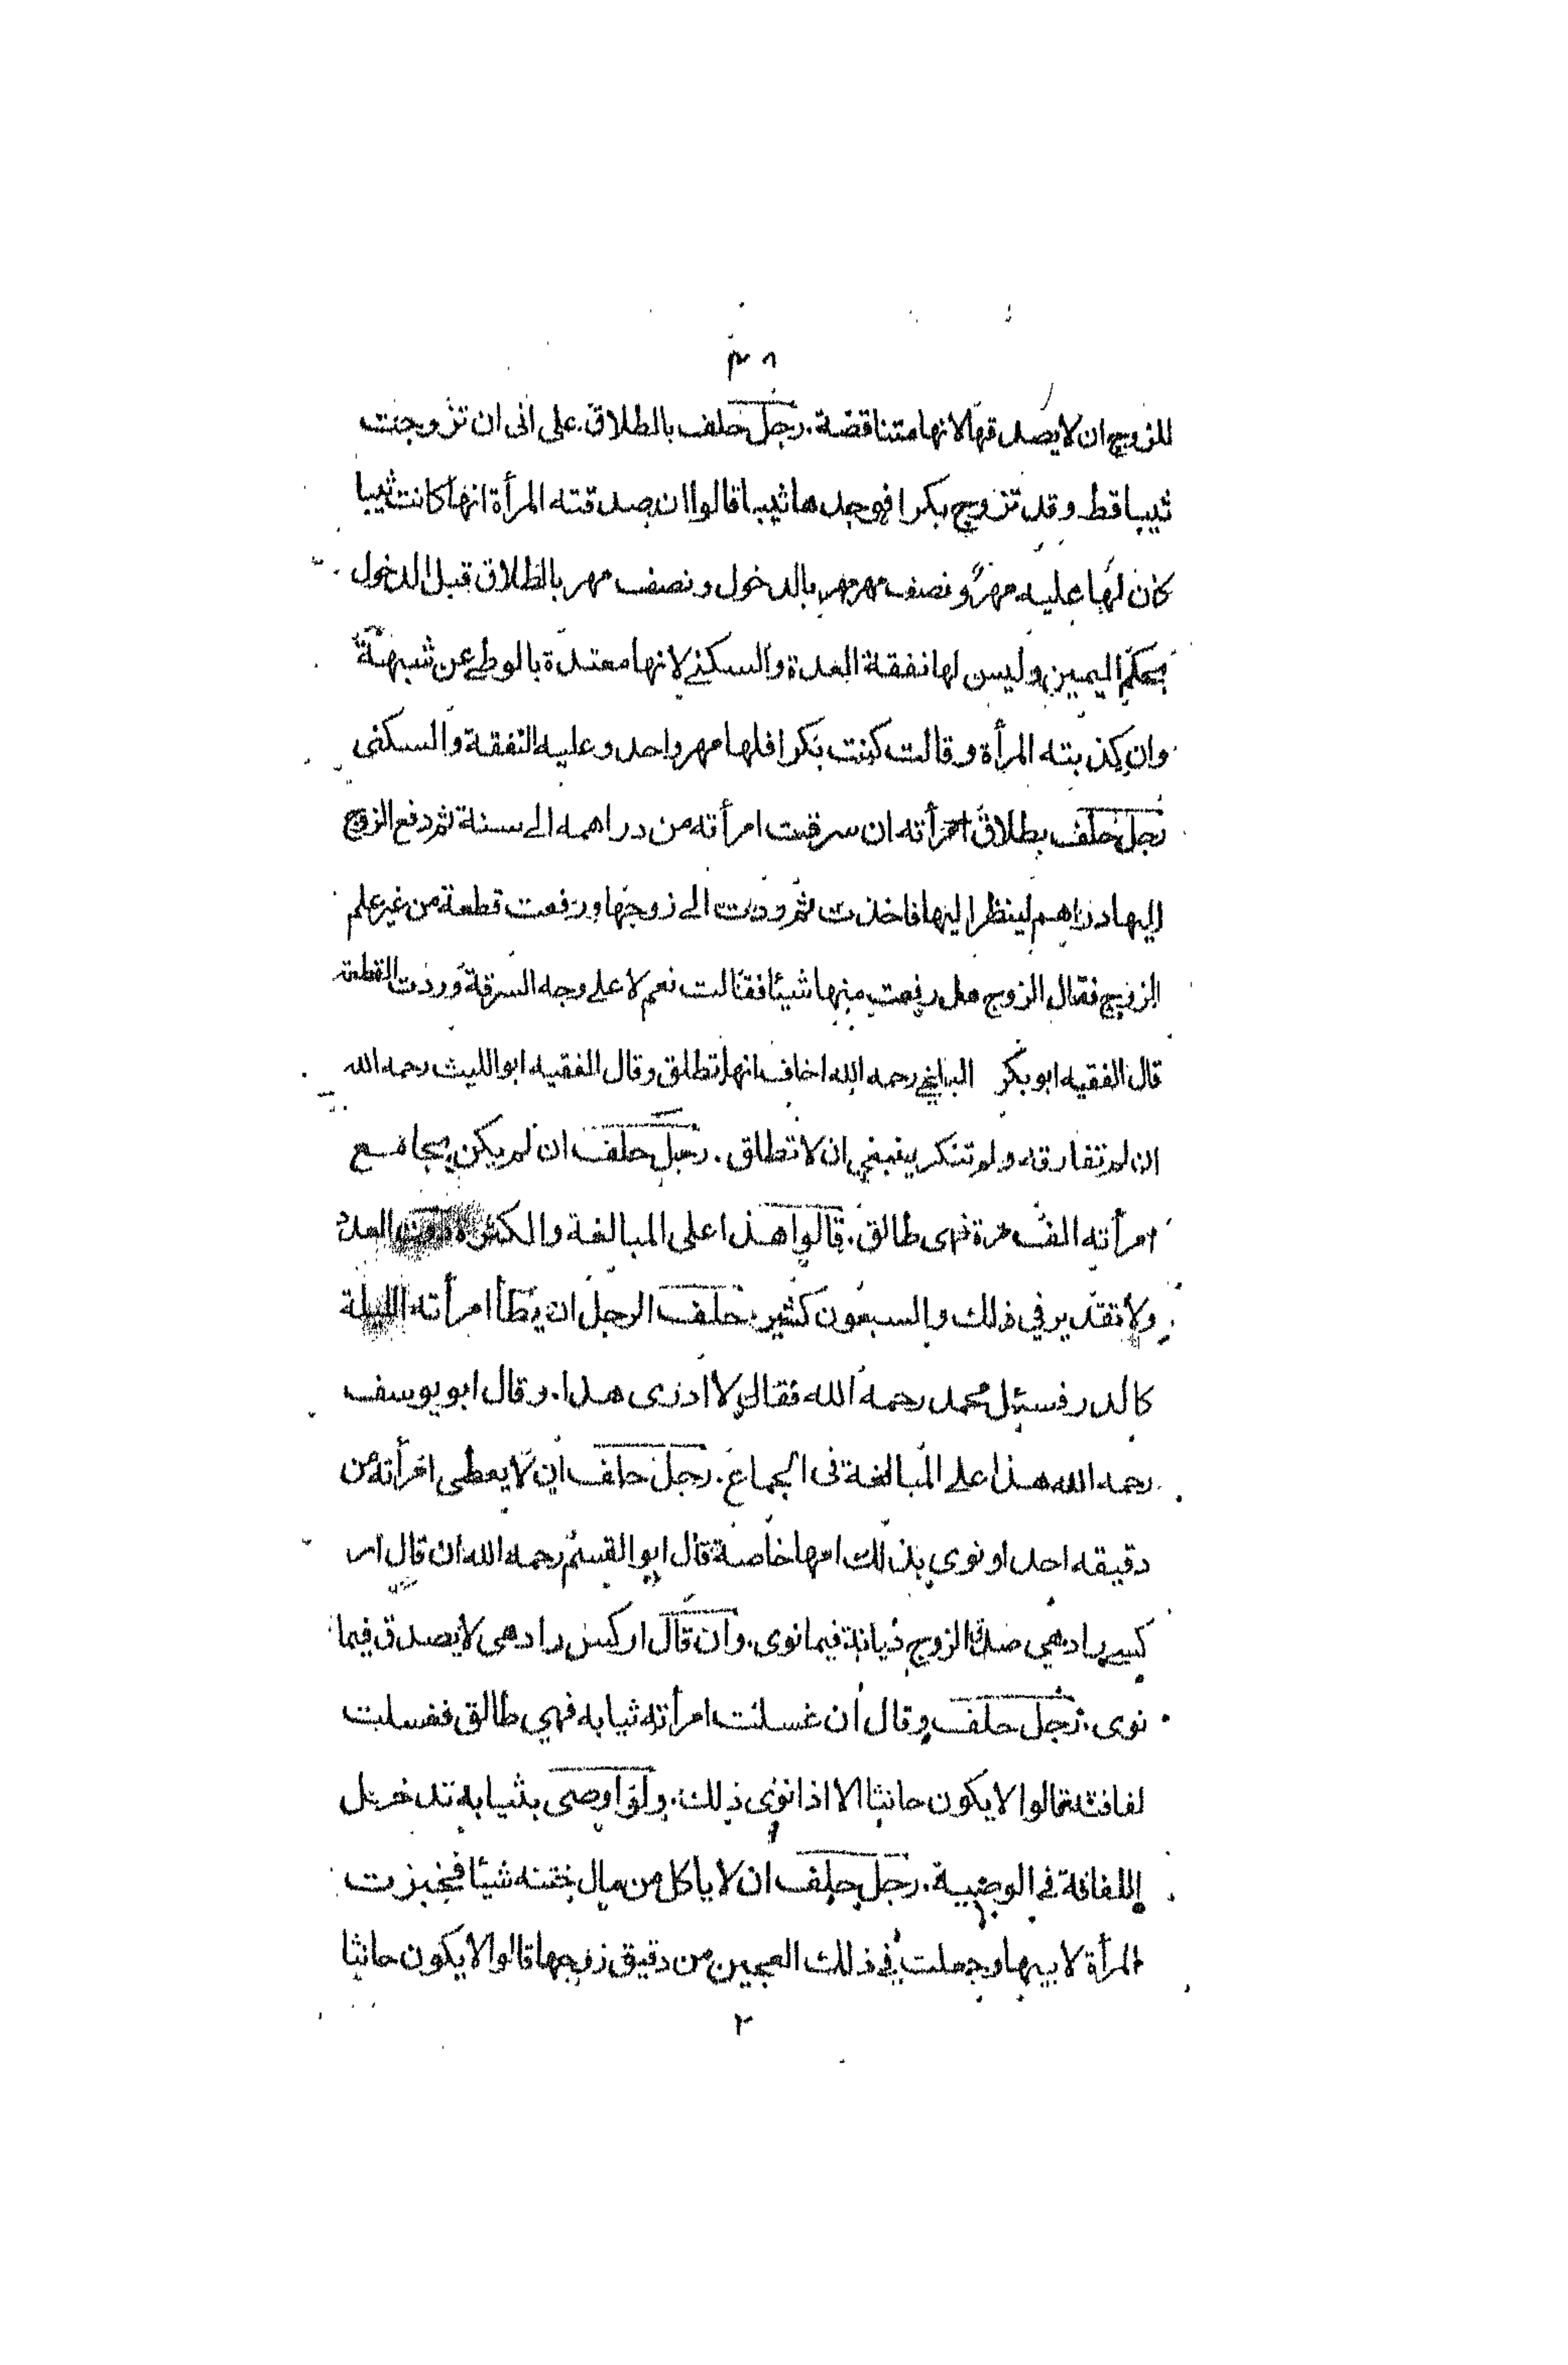 للزوج ان لا يصدقها لانها متناقضة. رجل حلف بالطلاق. على انى ان تزوجت
ثيبا قط وقد تزوج بكرا فوجدها ثيبا قالوا ان صدقته المرأة انها كانت ثيبا
كان لها عليه مهر ونصف مهر مهر بالدخول ونصف مهر بالطلاق قبل الدخول
بحكم اليمين وليس لها نفقة العدة والسكنى لانها معتدة بالوطئ عن شبهة
وان كذبته المرأة وقالت كنت بكرا فلها مهر واحد وعليه النفقة والسكنى
رجل حلف بطلاق امرأته ان سرقت امرأته من دراهمه الى سنة ثم دفع الزوج
اليها دراهم لينظر اليها فاخذت ثم ردت الى زوجها ورفعت قطعة من غير علم
الزوج فقال الزوج هل رفعت منها شيئا فقالت نعم لا على وجه السرقة وردت القطعة
قال الفقيه ابو بكر البلخي رحمه الله اخاف انها تطلق وقال الفقيه ابو الليث رحمه الله
ان لم تفارقه ولم تنكر ينبغي ان لا تطلق. رجل حلف ان لم يكن يجامع
امرأته الف مرة فهى طالق. قالوا هذا على المبالغة والكثرة دون العدد
ولا تقدير في ذلك والسبعون كثير. حلف الرجل ان يطأ امرأته الليلة
كالدر فسئل محمد رحمه الله فقال لا ادرى هذا. وقال ابو يوسف
رحمه الله هذا على المبالغة فى الجماع. رجل حلف ان لا يعطى امرأته من
دقيقه احدا ونوى بذلك امها خاصة قال ابو القسم رحمه الله ان قال ار
كسے را دهي صدق الزوج ديانة فيما نوى. وان قال اركس را دهى لا يصدق فيما
نوى. رجل حلف وقال ان غسلت امرأته ثيابه فهي طالق فغسلت
لفافته قالوا لا يكون حانثا الا اذا نوى ذلك. ولو اوصى بثيابه تدخل
اللفافة في الوصية. رجل حلف ان لا ياكل من مال ختنه شيئا فخبزت
المرأة لابيها وجعلت في ذلك العجين من دقيق زوجها قالوا لا يكون حانثا
٢